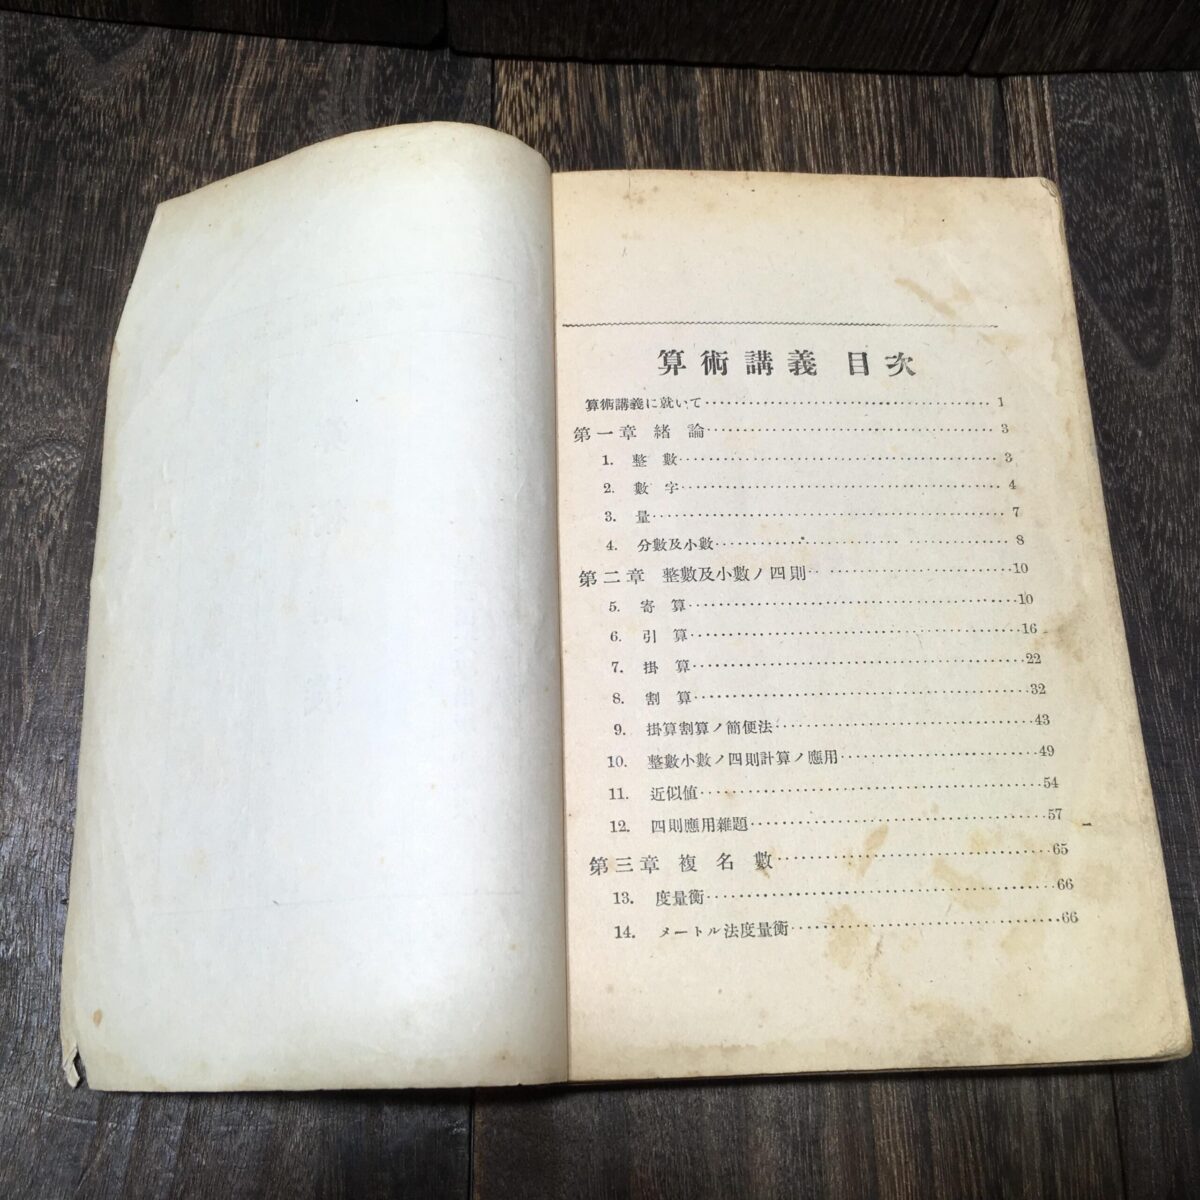 算術講義 目次
算術講義に就いて 1
第一章 緒論 3
1. 整數 3
2. 數字 4
3. 量 7
4. 分數及小數 8
第二章 整數及小數ノ四則 10
5. 寄算 10
6. 引算 16
7. 掛算 22
8. 割算 32
9. 掛算割算ノ簡便法 43
10. 整數小數ノ四則計算ノ應用 49
11. 近似値 54
12. 四則應用雜題 57
第三章 複名數 65
13. 度量衡 66
14. メートル法度量衡 66